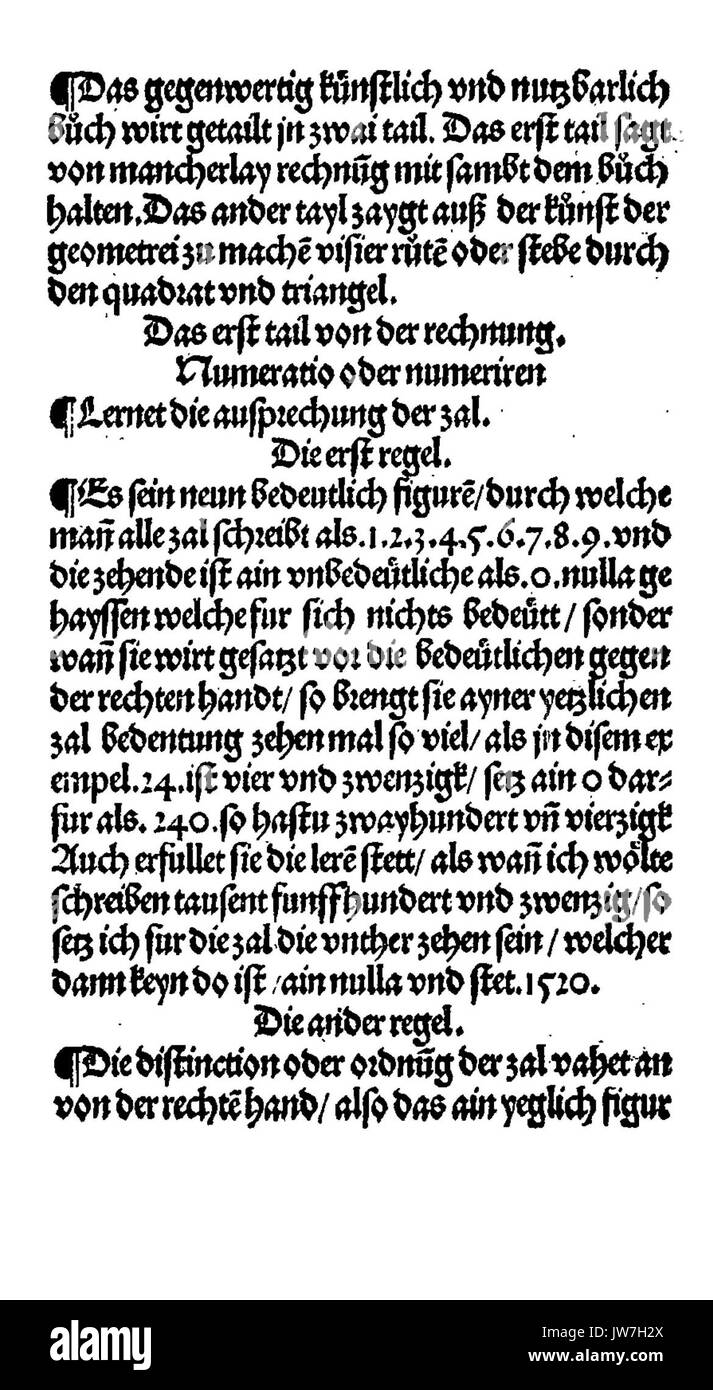 ¶Das gegenwertig kůnstlich vnd nutzbarlich
bůch wirt getailt jn zwai tail. Das erst tail sagt
von mancherlay rechnūg mit sambt dem bůch
halten. Das ander tayl zaygt auß der kůnst der
geometrei zu machē visier růtē oder stebe durch
den quadrat vnd triangel.
Das erst tail von der rechnung.
Numeratio oder numeriren
¶Lernet die ausprechung der zal.
Die erst regel.
¶Es sein neun bedeutlich figurē/durch welche
man̄ alle zal schreibt als.1.2.3.4.5.6.7.8.9.vnd
die zehende ist ain vnbedeůtliche als.0.nulla ge
hayssen welche fur sich nichts bedeůtt/ sonder
wan̄ sie wirt gesatzt vor die bedeůtlichen gegen
der rechten handt/ so brengt sie ayner yetzlichen
zal bedentung zehen mal so viel/ als jn disem ex
empel.24.ist vier vnd zwenzigk/ setz ain 0 dar⸗
fur als. 240.so hastu zwayhundert vn̄ vierzigk
Auch erfullet sie die lerē stett/ als wan̄ ich wölte
schreiben tausent funffhundert vnd zwenzig/so
setz ich fur die zal die vnther zehen sein/ welcher
dann keyn do ist /ain nulla vnd stet.1520.
Die ander regel.
¶Die distinction oder ordnūg der zal vahet an
von der rechtē hand/ also das ain yeglich figur
alamy
Image ID: JW7H2X
www.alamy.com